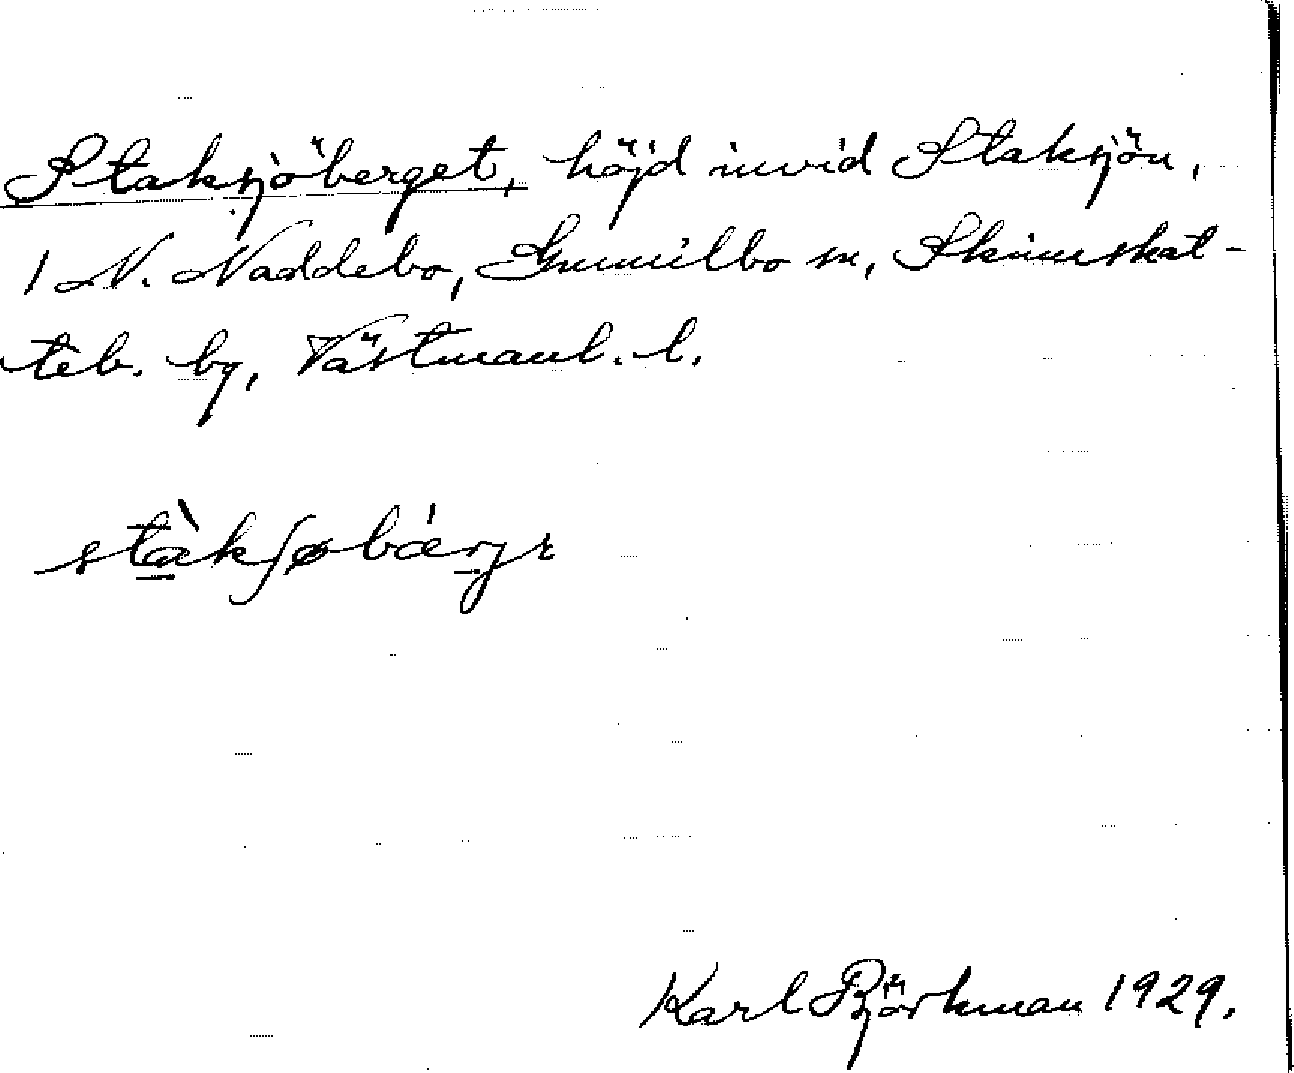 Staksjöberget, höjd invid Staksjön,
1 N. Naddebo, Gunnilbo sn, Skinnskat-
teb. by, Västmanl. l.
stàkʃøbǽrjɩ
Karl Björkman 1929.